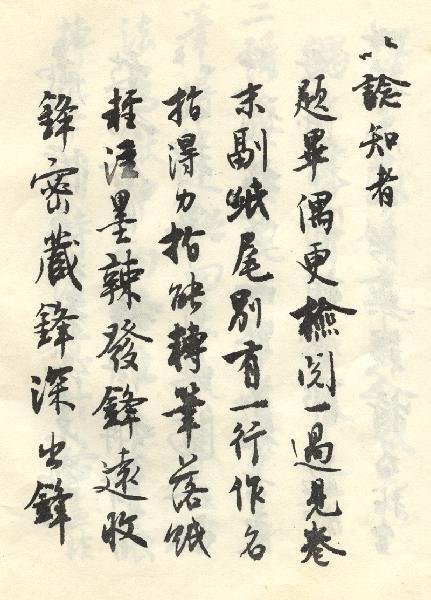 以諗知者
題畢偶更檢閱一過見卷
末副紙尾別有一行作名
指得力指能轉筆落紙
輕墨辣發鋒遠收
鋒密藏鋒深出鋒